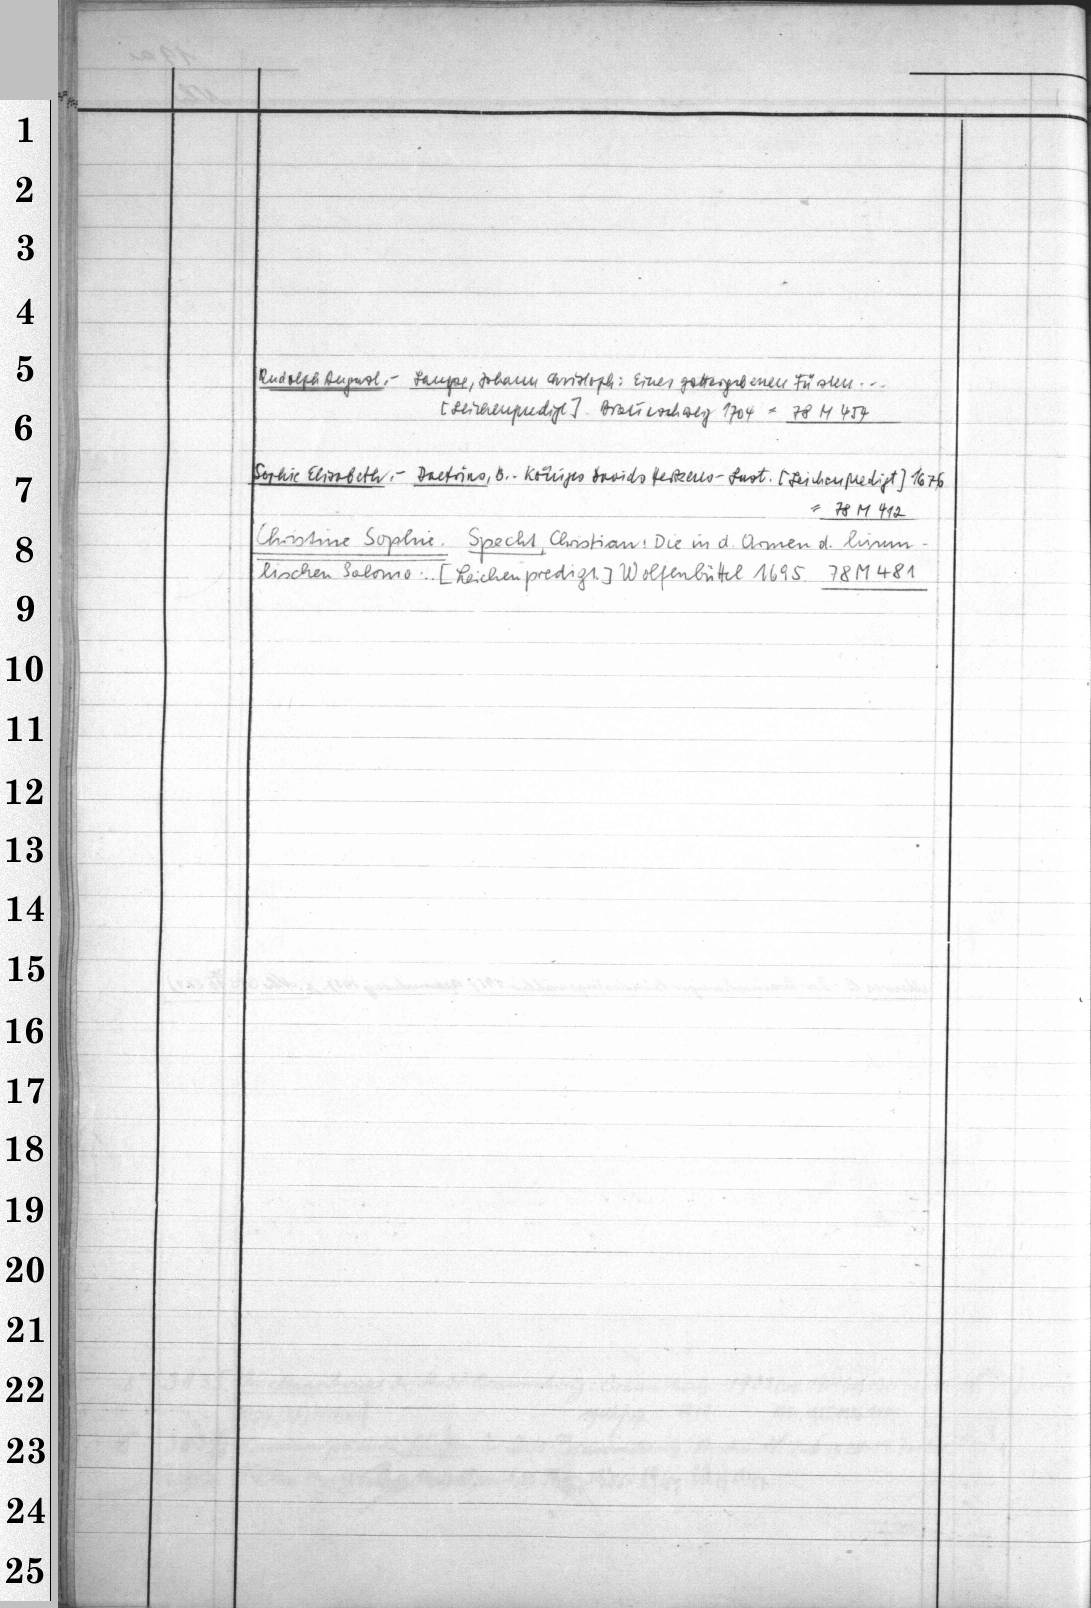 1
2
3
4
5
6
7
8
9
10
11
12
13
14
15
16
17
18
19
20
21
22
23
24
25
Rudolph August.- Lampe, Johann Christoph: Eines gottergebenen Fürsten ...
[Leichenpredigt]. Braunschweig 1704 = 78 M 454
Sophie Elisabeth.- Daetrius, B.. Königes Davids Hertzens-Lust. [Leichenpredigt] 1676
= 78 M 412
Christine Sophie. Specht, Christian: Die in d. Armen d. himm-
lischen Salomo ... [Leichenpredigt.] Wolfenbüttel 1695. 78 M 481